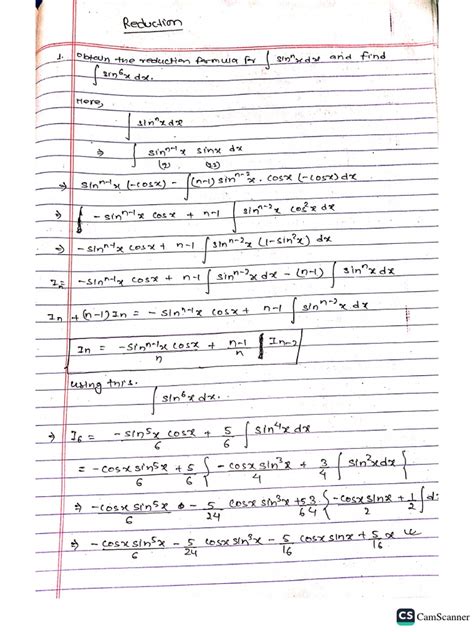 Reduction
1. Obtain the reduction formula for ∫ sinⁿx dx and find
∫ sin⁶x dx.
Here,
∫ sinⁿx dx
⇒ ∫ sinⁿ⁻¹x sinx dx
⇒ sinⁿ⁻¹x (-cosx) - ∫(n-1) sinⁿ⁻²x. cosx (-cosx) dx
⇒ -sinⁿ⁻¹x cosx + n-1 ∫ sinⁿ⁻²x cos²x dx
⇒ -sinⁿ⁻¹x cosx + n-1 ∫ sinⁿ⁻²x (1-sin²x) dx
Iₙ = -sinⁿ⁻¹x cosx + n-1 ∫ sinⁿ⁻²x dx - (n-1) ∫ sinⁿx dx
Iₙ + (n-1) Iₙ = -sinⁿ⁻¹x cosx + n-1 ∫ sinⁿ⁻²x dx
Iₙ = -sinⁿ⁻¹x cosx / n + n-1 / n Iₙ₋₂
using this.
∫ sin⁶x dx.
⇒ I₆ = -sin⁵x cosx / 6 + 5/6 ∫ sin⁴x dx
= -cosx sin⁵x / 6 + 5/6 { -cosx sin³x / 4 + 3/4 ∫ sin²x dx }
⇒ -cosx sin⁵x / 6 - 5/24 cosx sin³x + 5 3 / 6 4 { -cosx sinx / 2 + 1/2 ∫ d
⇒ -cosx sin⁵x / 6 - 5/24 cosx sin³x - 5/16 cosx sinx + 5/16 x
CS CamScanner